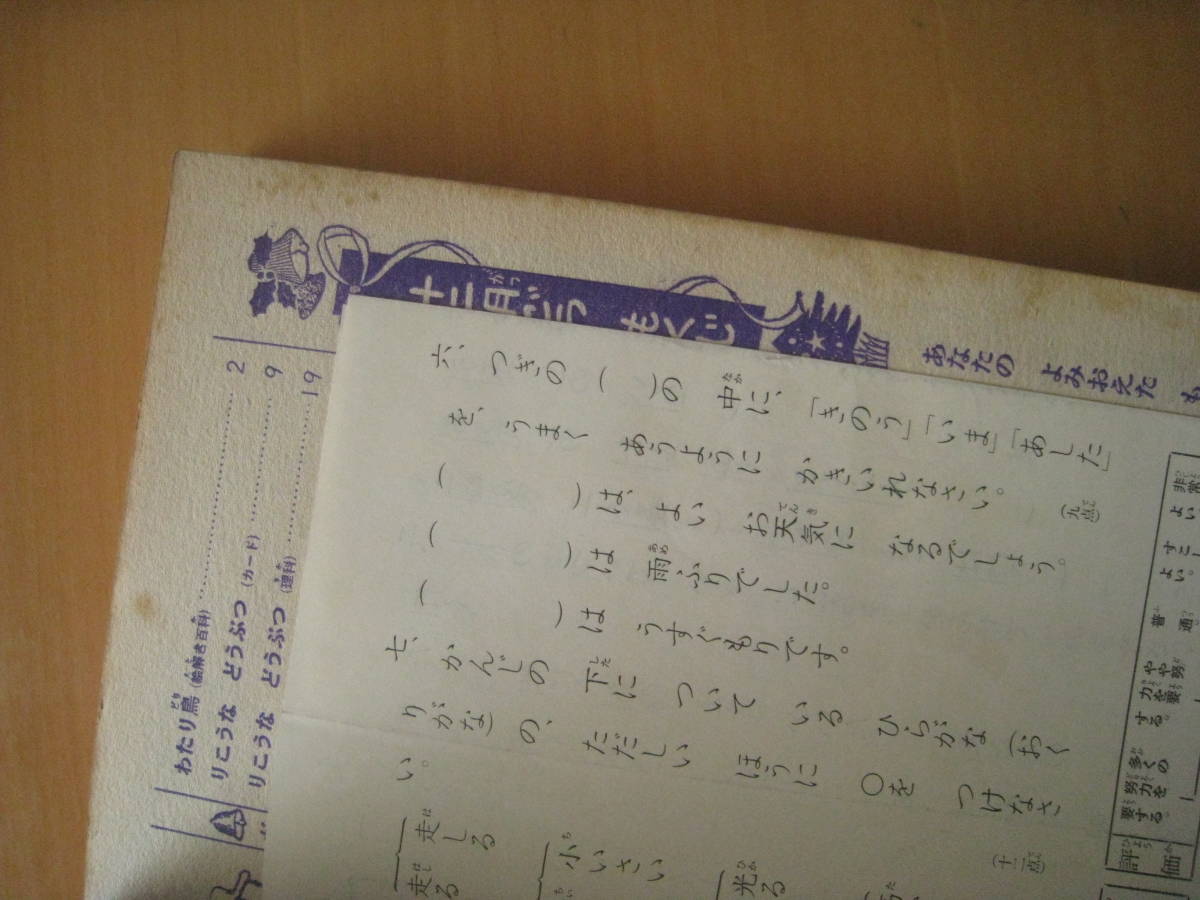 十二月ごう もくじ
あなたの よみおえた
わたり鳥（絵解き百科） 2
りこうな どうぶつ（カード） 9
りこうな どうぶつ（理科） 19
六、つぎの（　）の 中に、「きのう」「いま」「あした」
を、うまく あうように かきいれなさい。（九点）
（　　）は、よい お天気に なるでしょう。
（　　）は 雨ふりでした。
（　　）は うすぐもりです。
七、かんじの 下に ついて いる ひらがな（おく
りがな）の、ただしい ほうに ○を つけなさ
い。（十二点）
走しる
走る
小いさい
光る
評価
非常によい。
すこしよい。
普通
やや努力を要する。
多くの努力を要する。